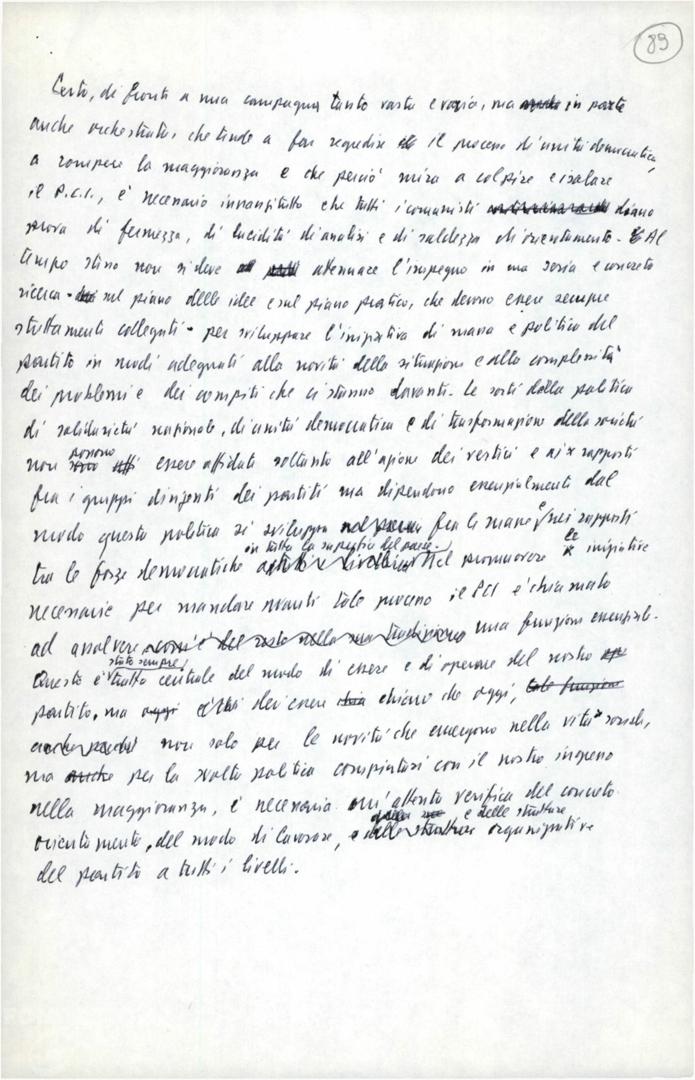 89
Certo, di fronte a una campagna tanto vasta e varia, ma anche in parte
anche orchestrata, che tende a far regredire il processo di unità democratica,
a rompere la maggioranza e che perciò mira a colpire e isolare
il P.C.I., è necessario innanzitutto che tutti i comunisti diano
prova di fermezza, di lucidità di analisi e di saldezza di orientamento. Al
tempo stesso non si deve attenuare l'impegno in una seria e concreta
ricerca - sul piano delle idee e sul piano pratico, che devono essere sempre
strettamente collegati - per sviluppare l'iniziativa di massa e politica del
partito in modi adeguati alla novità della situazione e alla complessità
dei problemi e dei compiti che ci stanno davanti. Le sorti della politica
di solidarietà nazionale, di unità democratica e di trasformazione della società
non possono essere affidate soltanto all'azione dei vertici e ai rapporti
fra i gruppi dirigenti dei partiti ma dipendono essenzialmente dal
modo questa politica si sviluppa nel paese fra le masse e nei rapporti
tra le forze democratiche in tutta la superficie del paese. Nel promuovere le iniziative
necessarie per mandare avanti tale processo il PCI è chiamato
ad assolvere com'è del resto nella sua tradizione una funzione essenziale.
Questo è stato sempre tratto centrale del modo di essere e di operare del nostro
partito, ma oggi deve essere chiaro che oggi, tale funzione
anche perché non solo per le novità che emergono nella vita sociale,
ma anche per la svolta politica compiutasi con il nostro ingresso
nella maggioranza, è necessaria un'attenta verifica del concreto
orientamento, del modo di lavorare, e delle strutture organizzative
del partito a tutti i livelli.